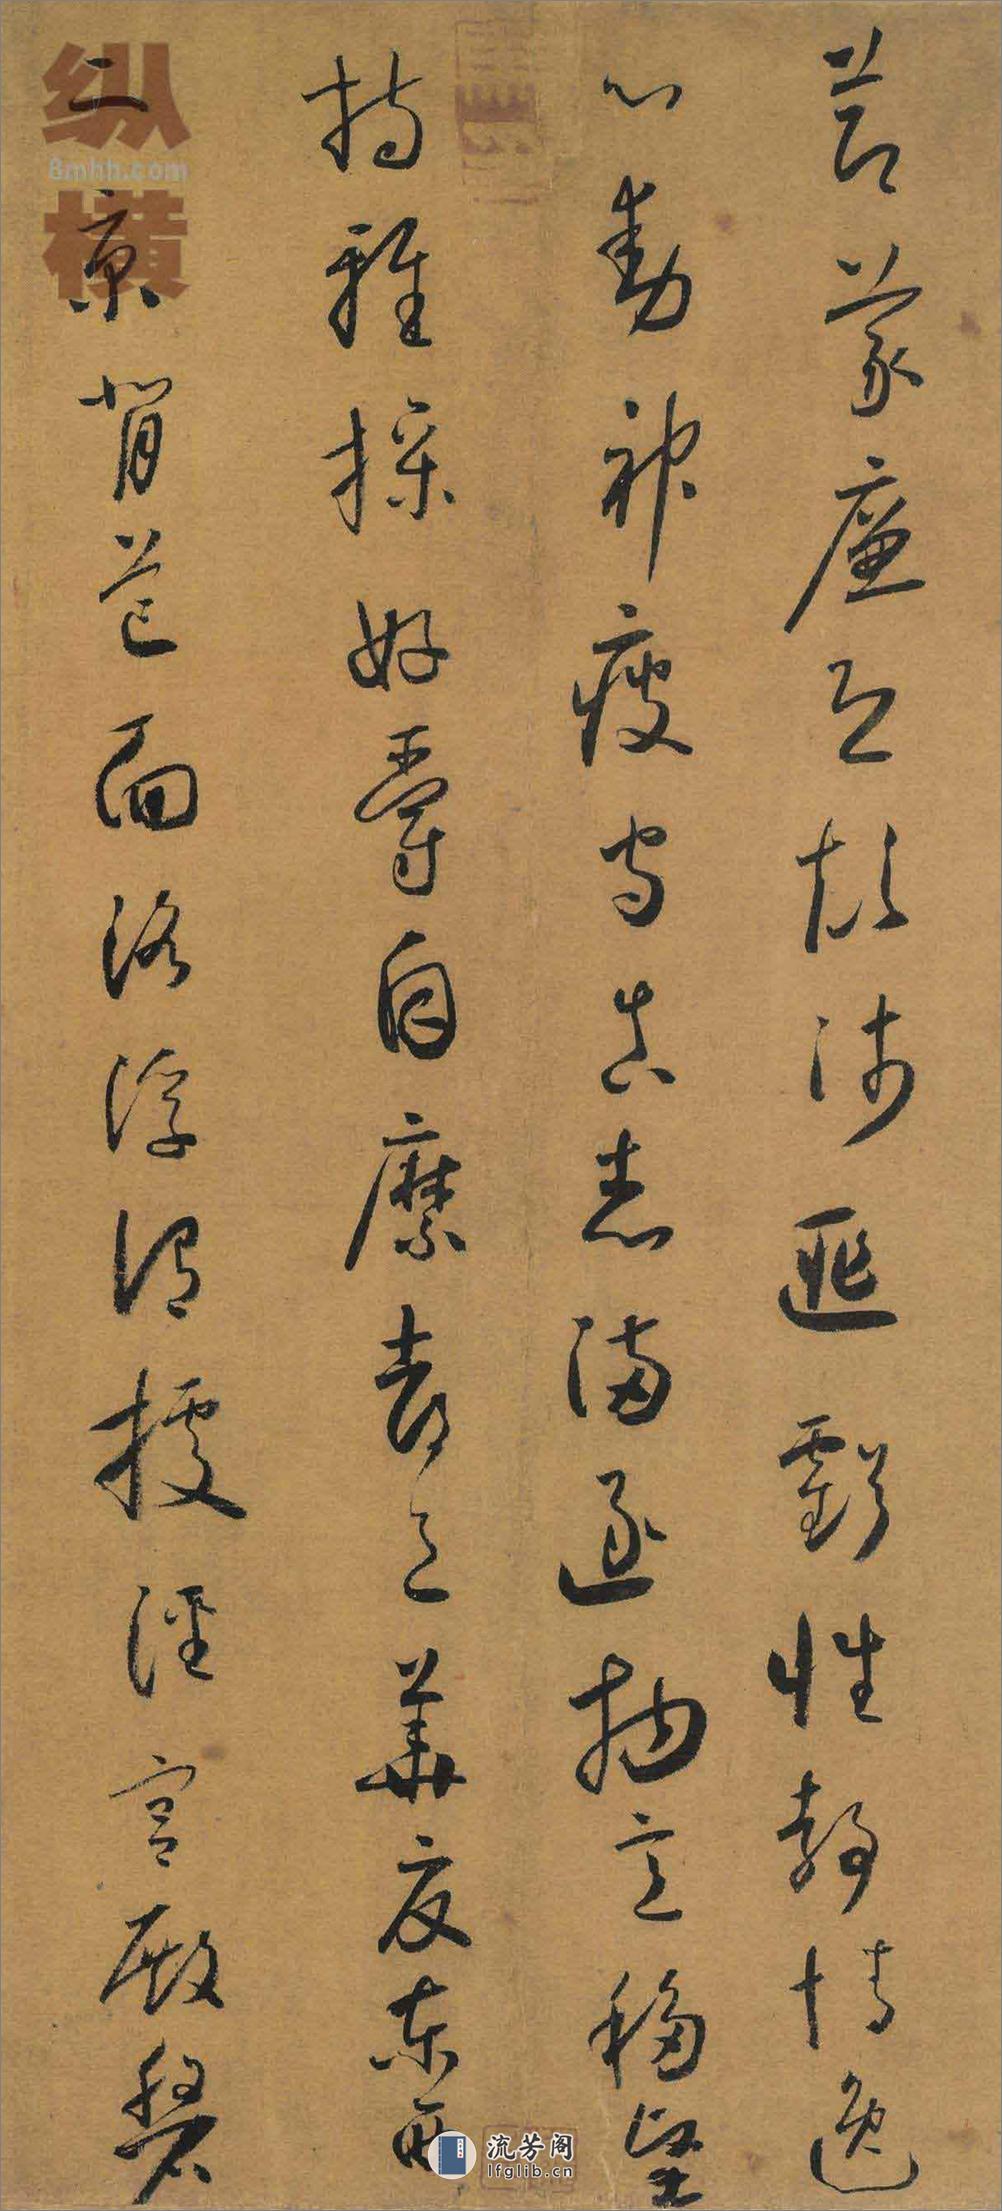 節義廉退顛沛匪虧性靜情逸
心動神疲守真志滿逐物意移堅
持雅操好爵自縻都邑華夏東西
二京背芒面洛浮渭據涇宮殿磐
纵横
8mhh.com
流芳阁
lfglib.cn